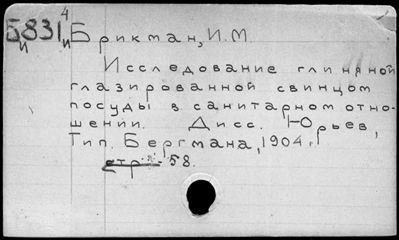 Б831 4 Брикман, И.М
и и
Исследование глиняной
глазированной свинцом
посуды в санитарном отно-
шении. Дисс. Юрьев,
Тип. Бергмана, 1904 г
стр. 58.